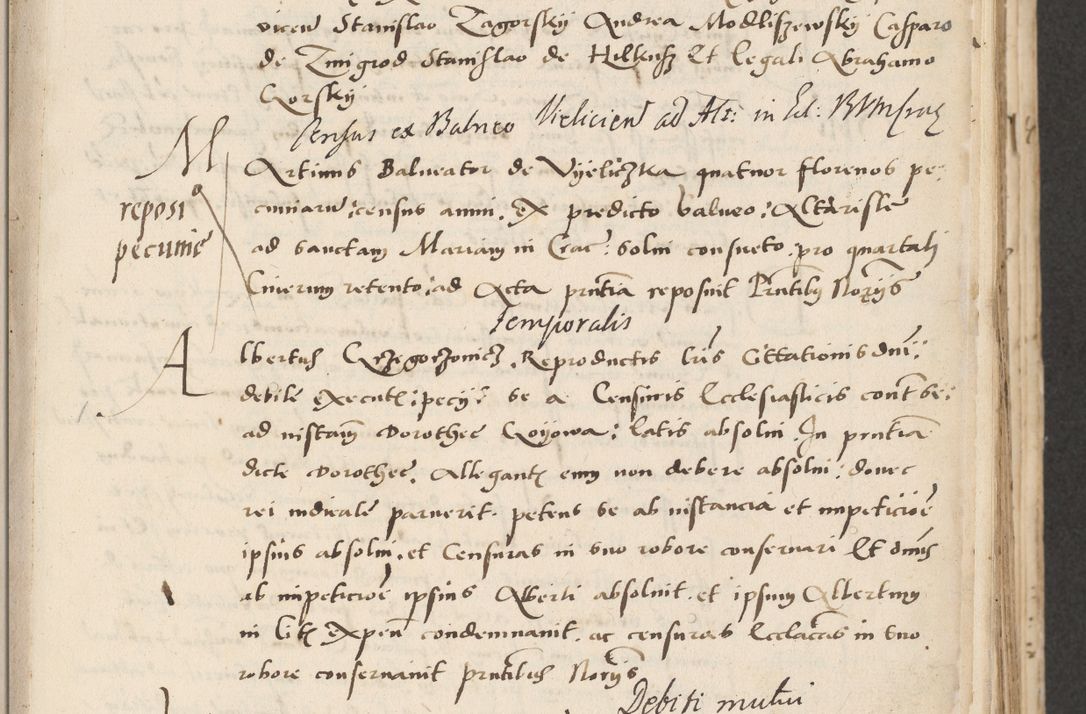 vicen Stanislao Zagorskÿ Andrea Modliszewskÿ Casparo
de Zmigrod Stanislao de Hilkusz Et legali Abrahamo
Gorskÿ
Census ex Balneo Vielicien ad Alt: in Ed: B.V.M.
Martinus Balneator de Vÿeliczka quatuor florenos pe-
reposi
pecunie
cuniaru: census annui. ex predicto balneo: Altariste
ad sanctam Mariam in Crac: solui consueto. pro quartali
Cinerum retento: ad Acta pntia reposuit Pntibus Norÿs
Temporalis
Albertus Grzegorzowicz. Reproductis lris Cittationis dni:
debite executis: pecÿt se a Censuris Ecclesiasticis cont se:
ad instam Dorothee Goÿowa: latis absolui. In pntia
dicte Dorothee. Allegantis eum non debere absolui: donec
rei iudicate paruerit. petens se ab instancia et impeticioe
ipsius absolui. et Censuras in suo robore conseruari Et dnus
ab impeticioe ipsius Alberti absoluit. et ipsum Albertum
in litis expen condemnauit. ac censuras Ecclasticas in suo
robore conseruauit pntibus Norÿs
Debiti mutui